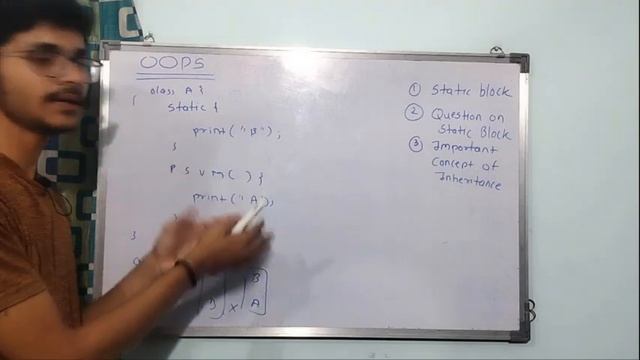 OOPS
class A {
static {
print("B");
}
P S V M( ) {
print("A");
}
}
B
B x A
① Static block
② Question on
Static Block
③ Important
Concept of
Inheritance